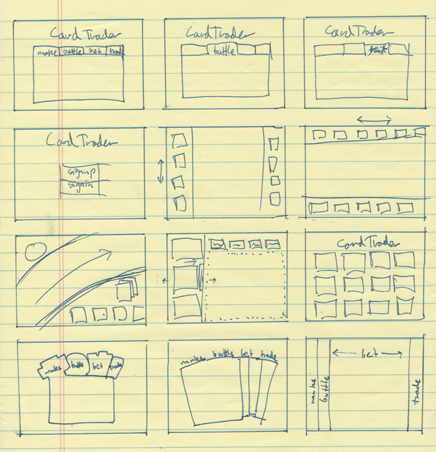 CardTrader
make battle bet trade
CardTrader
battle
CardTrader
CardTrader
signup
signin
CardTrader
make battle bet trade
make battle bet trade
bet
make battle trade